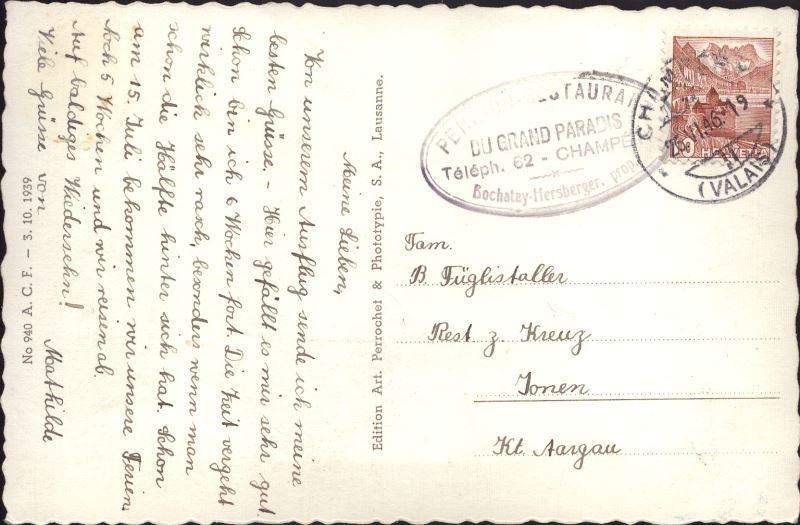 Meine Lieben,
Von unserem Ausflug sende ich meine
besten Grüsse. - Hier gefällt es mir sehr gut.
Schon bin ich 6 Wochen fort. Die Zeit vergeht
wirklich sehr rasch, besonders wenn man
schon die Hälfte hinter sich hat. Schon
am 15. Juli bekommen wir unsere Ferien.
Noch 5 Wochen und wir reisen ab.
Auf baldiges Wiedersehn!
Viele Grüsse von Mathilde
No 940 A. C. F. – 3. 10. 1939
Edition Art. Perrochet & Phototypie, S. A., Lausanne.
DU GRAND PARADIS
Téléph. 62 - CHAMPE
Bochatay-Hersberger, prop
(VALAIS)
HELVETIA
Fam.
B. Füglistaller
Rest z. Kreuz
Jonen
Kt. Aargau